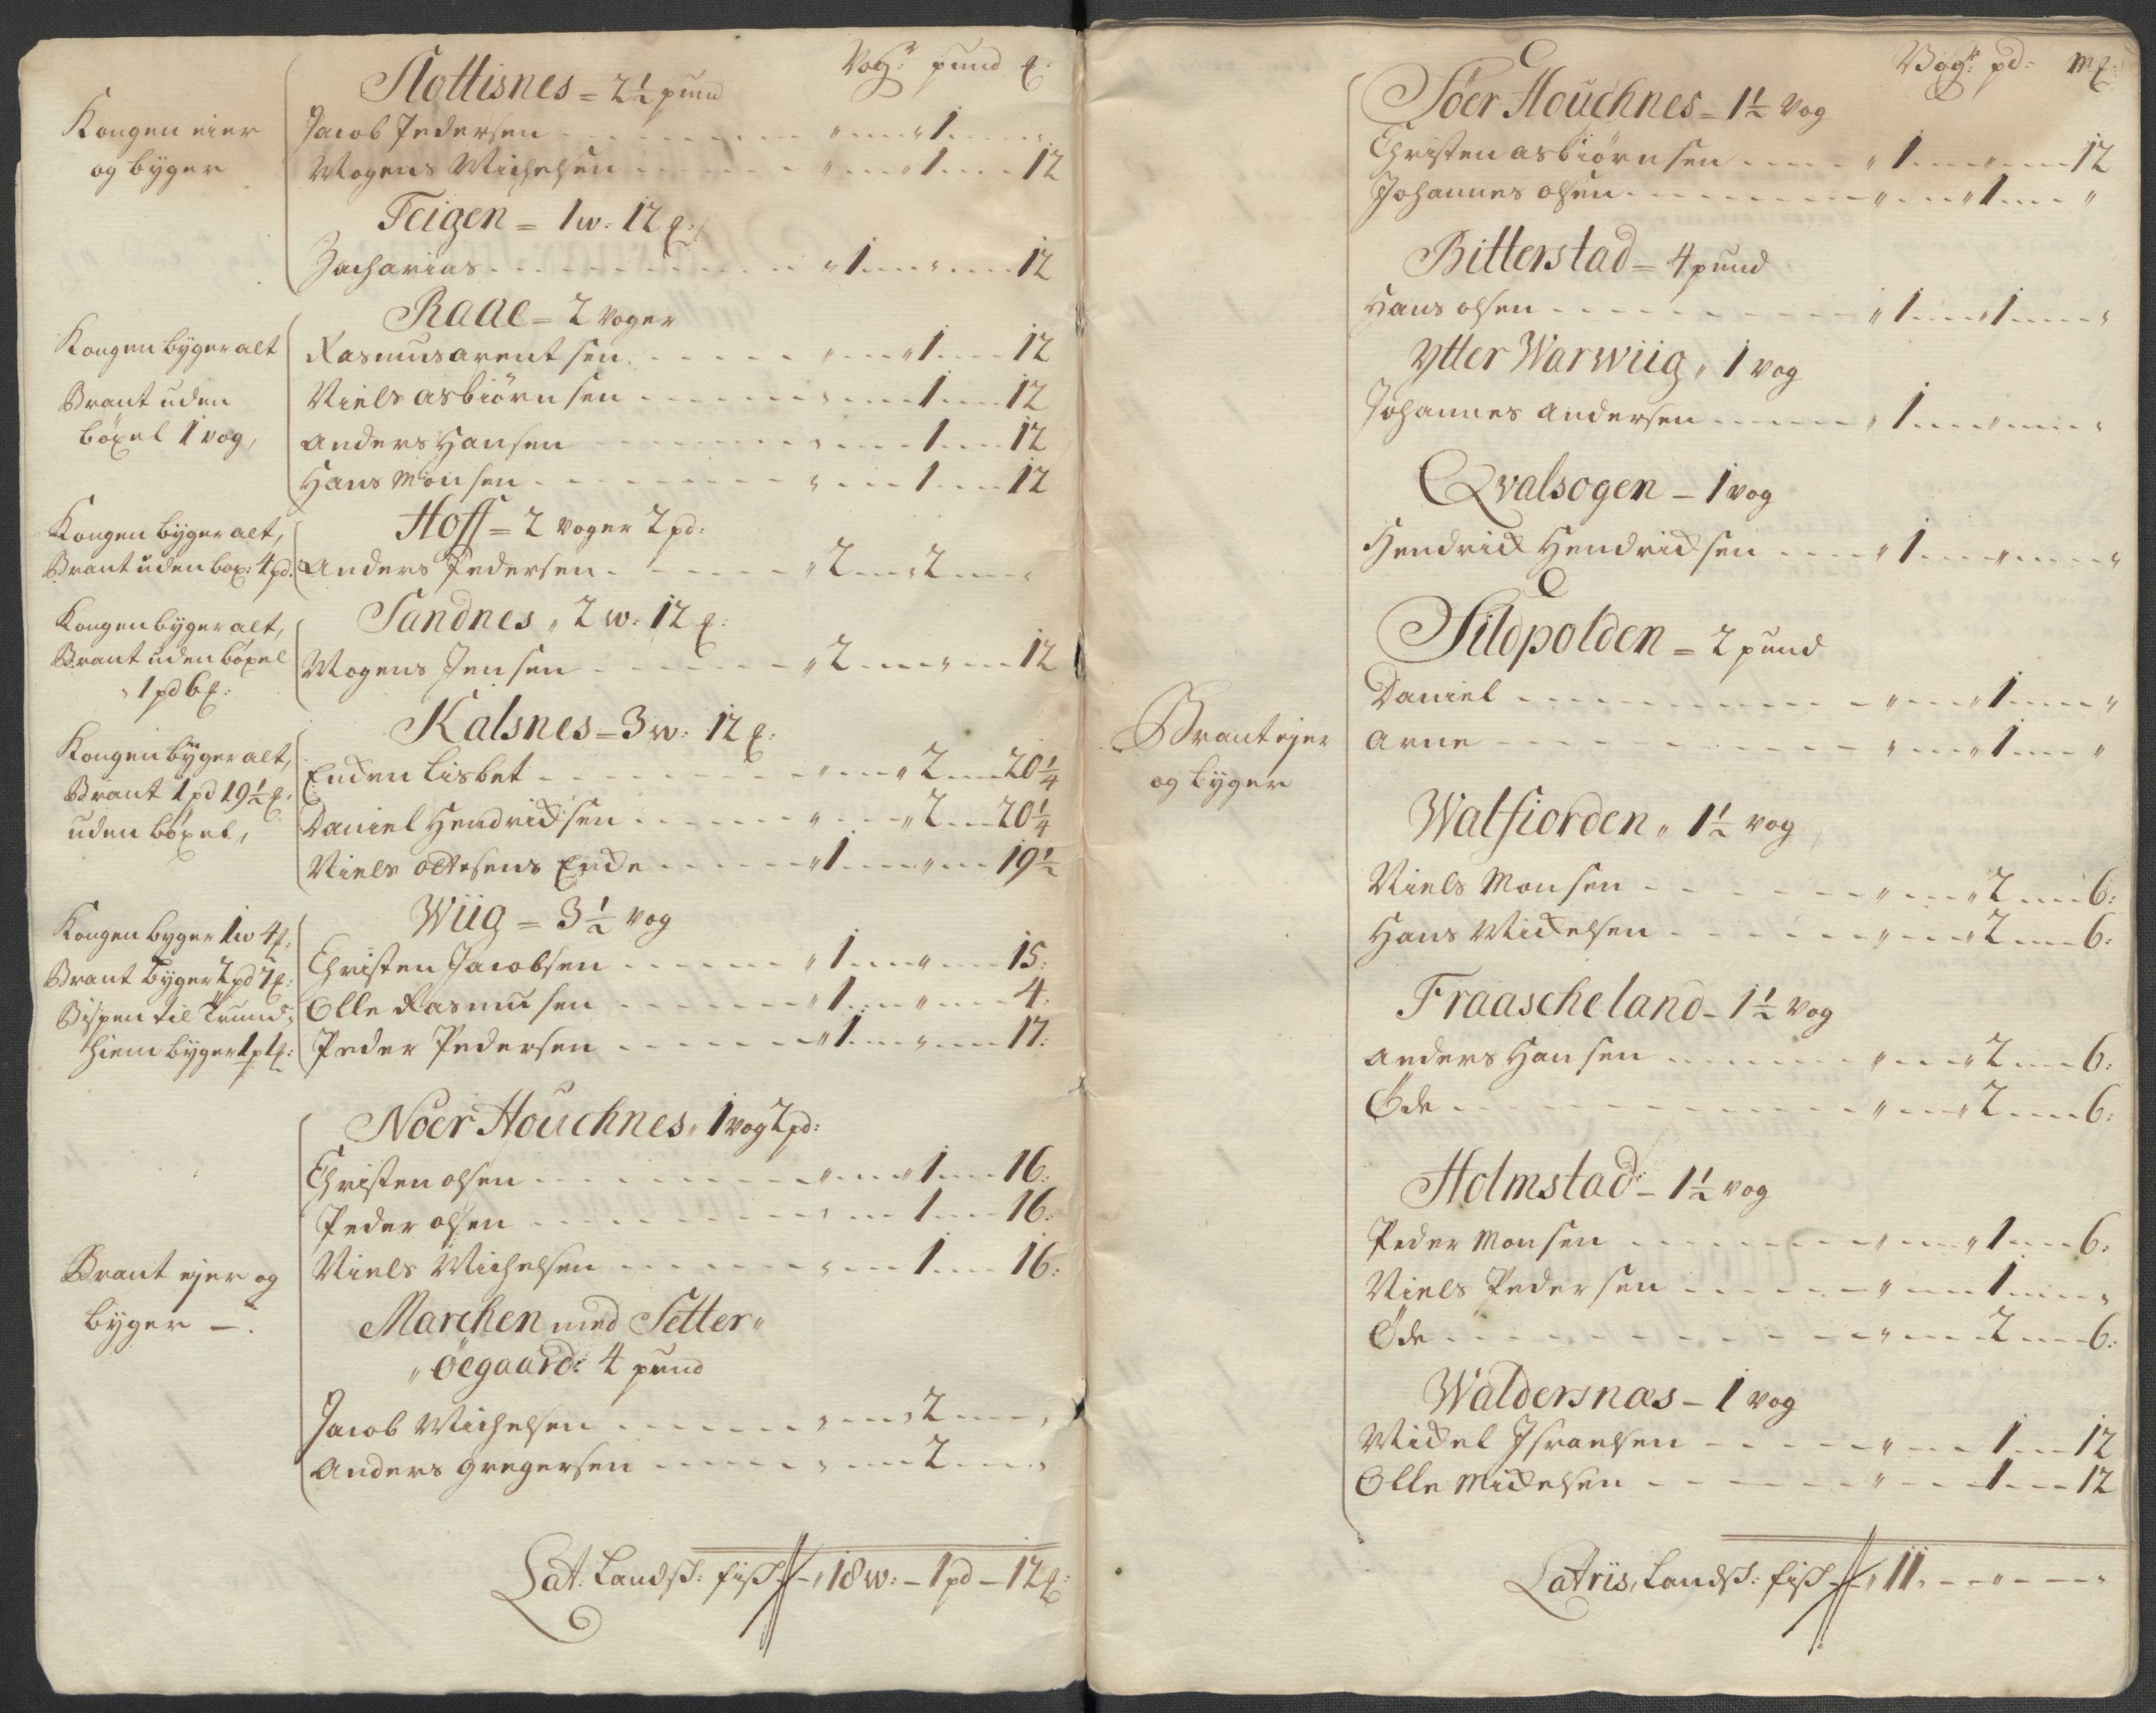 Vog: pund ℔:
Slottisnes = 2½ pund
Kongen eier
og byger
Jacob Pedersen - - - „ - - „ 1 - - „
Mogens Michelsen - - - „ - - „ 1 - - 12
Feigen = 1 w: 12 ℔:
Zacharias - - - „ 1 - - „ - - 12
Raae = 2 voger
Kongen byger alt
Brant uden
böxel 1 vog,
Rasmus arentsen - - - „ - - „ 1 - - 12
Niels asbiörnsen - - - „ - - 1 - - 12
Anders Hansen - - - „ - - 1 - - 12
Hans Monsen - - - „ - - 1 - - 12
Hoff = 2 voger 2 pd:
Kongen byger alt,
Brant uden box: 4 pd:
Anders Pedersen - - - „ 2 - - „ 2 - - „
Sandnes „ 2 w: 12 ℔:
Kongen byger alt,
Brant uden böxel
„ 1 pd 6 ℔:
Mogens Jensen - - - „ 2 - - „ - - 12
Kalsnes = 3 w: 12 ℔:
Kongen byger alt,
Brant 1 pd 19½ ℔:
uden böxel,
Enden Lisbet - - - „ - - „ 2 - - 20¼
Daniel Hendricksen - - - „ - - „ 2 - - 20¼
Niels Ottesens Encke - - - „ 1 - - „ - - 19½
Wiig = 3½ vog
Kongen byger 1 w 4 ℔:
Brant byger 2 pd 7 ℔:
Bispen til Trund-
hiem byger 1 p 1 ℔:
Christen Jacobsen - - - „ 1 - - „ - - 15:
Olle Rasmusen - - - „ 1 - - „ - - 4:
Peder Pedersen - - - „ 1 - - „ - - 17:
Noer Houchnes „ 1 vog 2 pd:
Christen olsen - - - „ - - „ 1 - - 16:
Peder olsen - - - „ - - 1 - - 16:
Niels Michelsen - - - „ - - 1 - - 16:
Brant ejer og
byger -
Marchen med Setter „
„ Öegaard: 4 pund
Jacob Michelsen - - - „ - - „ 2 - - „
Anders Gregersen - - - „ - - 2 - - „
Lat: Landsk: fisk - „ 18 w: - 1 pd - 12 ℔:
Vog: pd: m℔:
Söer Houchnes = 1½ vog
Christen asbiörnsen - - - „ 1 - - „ - - 12
Johannes olsen - - - „ - - „ 1 - - „
Bitterstad = 4 pund
Hans olsen - - - „ 1 - - „ 1 - - „
Ytter Warwiig „ 1 vog
Johannes Andersen - - - „ 1 - - „ - - „
Qvalsogen - 1 vog
Hendrick Hendricksen - - - „ 1 - - „ - - „
Sildpolden = 2 pund
Daniel - - - „ - - „ 1 - - „
Arne - - - „ - - „ 1 - - „
Brant ejer
og byger
Walfiorden „ 1½ vog
Niels Monsen - - - „ - - „ 2 - - 6:
Hans Mickelsen - - - „ - - „ 2 - - 6:
Fraascheland - 1½ vog
Anders Hansen - - - „ - - „ 2 - - 6:
Öde - - - „ - - „ 2 - - 6:
Holmstad - 1½ vog
Peder Monsen - - - „ - - „ 1 - - 6:
Niels Pedersen - - - „ - - 1 - - „
Öde - - - „ - - 2 - - 6:
Waldersnæs - 1 vog
Mickel Israelsen - - - „ - - 1 - - 12
Olle Mickelsen - - - „ - - 1 - - 12
Latriis, Landsk: fisk - „ 11 „ - - „ - - „